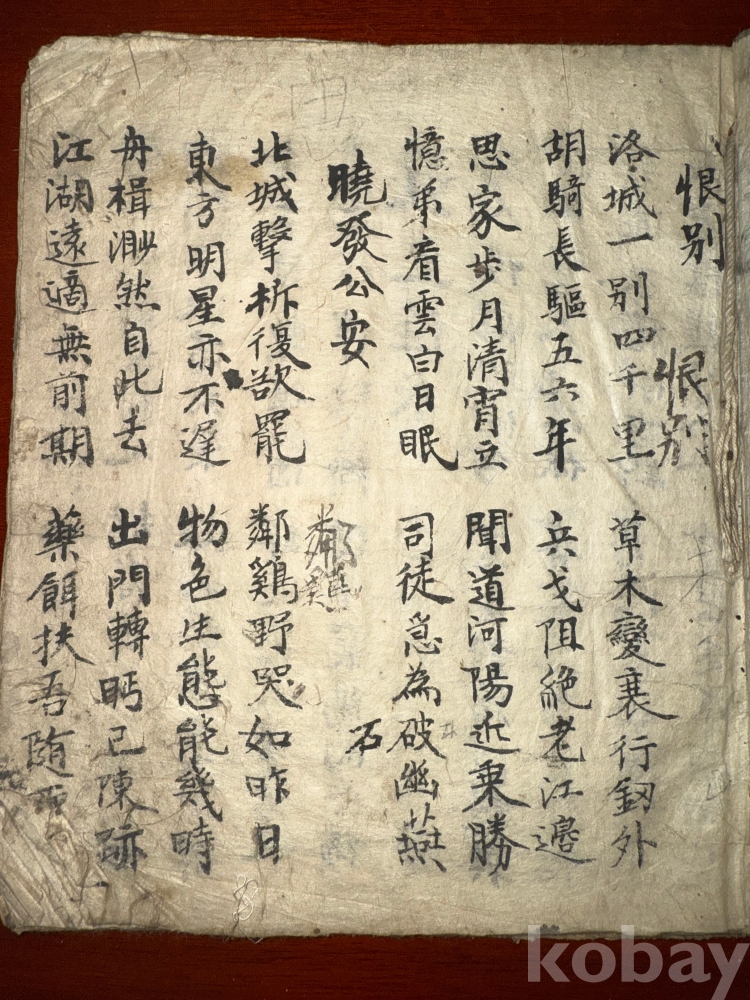 恨別
恨別
洛城一別四千里 草木變衰行釼外
胡騎長驅五六年 兵戈阻絶老江邊
思家步月清宵立 聞道河陽近乗勝
憶弟看雲白日眠 司徒急為破幽燕
石
曉發公安
鄰鷄
北城擊柝復欲罷 鄰鷄野哭如昨日
東方明星亦不遲 物色生態能幾時
舟楫渺然自此去 出門轉眄已陳跡
江湖遠適無前期 藥餌扶吾随
kobay